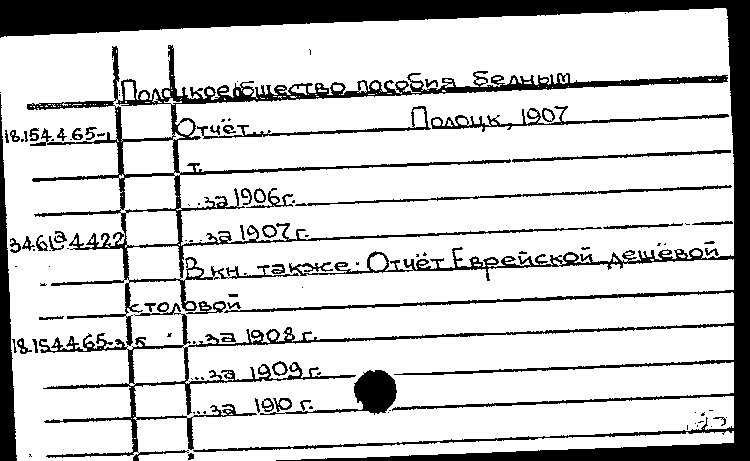 Полоцкое общество пособия бедным.
18.154.4.65-1 Отчёт... Полоцк, 1907
т.
...за 1906 г.
34.61а 4.422 ...за 1907 г.
В кн. также: Отчёт Еврейской дешёвой
столовой
18.154.4.65-3,5 ...за 1908 г.
...за 1909 г.
...за 1910 г.